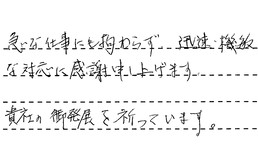 急ぎの仕事にも拘わらず 迅速・機敏
な対応に感謝申し上げます。
貴社の御発展を祈っています。